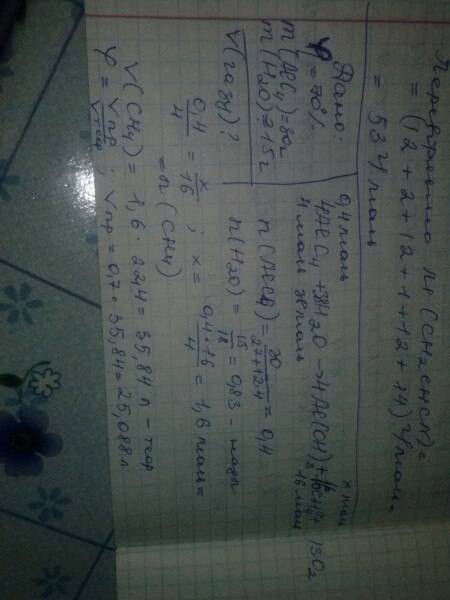 Перевіримо M (CH2CHCN) =
= (12+2+12+1+12+14) г/моль =
= 53 г/моль
Дано:
φ = 70%
m(AlC4)=30г
m(H2O)=15г
V(газу)?
0,4 моль x моль
4AlC4 + 38H2O → 4Al(OH)3 + 16CH4 + 13O2
4 моль 38моль 16 моль
n(AlC4) = 30/27+12·4 = 0,4
n(H2O) = 15/18 = 0,83 - надл
0,4/4 = x/16 ; x = 0,4·16/4 = 1,6 моль =
= n(CH4)
V(CH4) = 1,6·22,4 = 35,84 л - теор
φ = Vпр/Vтеор ; Vпр = 0,7·35,84 = 25,088 л